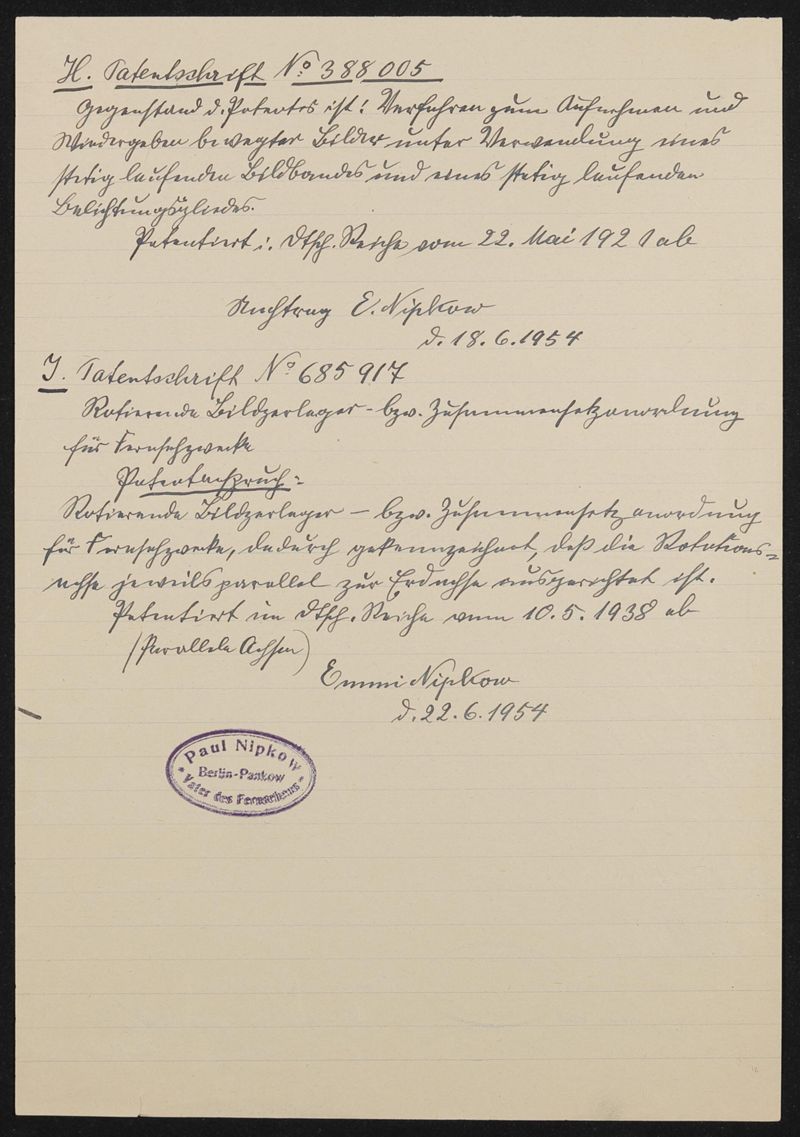 H. Patentschrift No 388005
Gegenstand d. Patentes ist: Verfahren zum Aufnehmen und
Wiedergeben bewegter Bilder unter Verwendung eines
stetig laufenden Bildbandes und eines stetig laufenden
Belichtungsgliedes.
Patentiert i. Dtsch. Reiche vom 22. Mai 1921 ab
Nachtrag E. Nipkow
d. 18.6.1954
J. Patentschrift No 685917
Rotierende Bildzerleger- bzw. Zusammensetzanordnung
für Fernsehzwecke
Patentanspruch:
Rotierende Bildzerleger – bzw. Zusammensetzanordnung
für Fernsehzwecke, dadurch gekennzeichnet, daß die Rotations-
achse jeweils parallel zur Erdachse ausgerichtet ist.
Patentiert im Dtsch. Reiche vom 10.5.1938 ab
(Parallele Achsen)
Emmi Nipkow
d. 22.6.1954
Paul Nipkow
Berlin-Pankow
* Vater des Fernsehens *